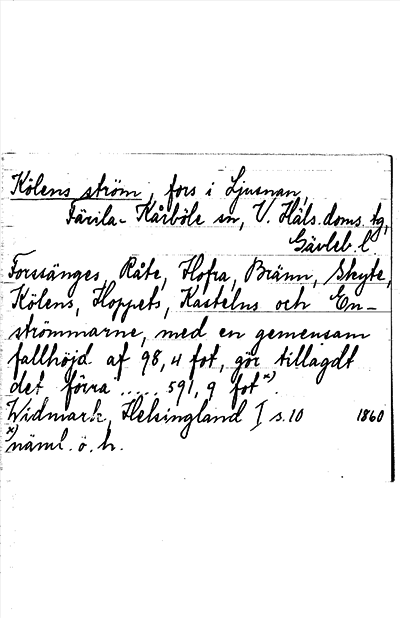 Kölens ström, fors i Ljusnan,
Färila-Kårböle sn, V. Häls. doms. tg,
Gävleb. l.
Forssänges, Råte, Hofra, Bränn, Skyte,
Kölens, Hoppets, Kastelns och En-
strömmarne, med en gemensam
fallhöjd af 98,4 fot, gör tillagdt
det förra ..... 591,9 fot x).
Widmark, Helsingland I s. 10 1860
x) näml. ö. h.